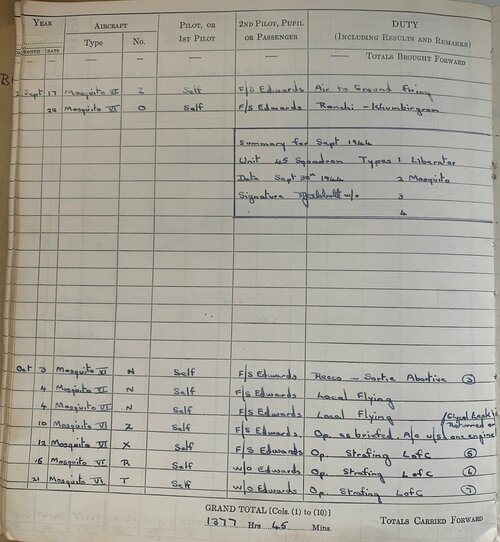 YEAR AIRCRAFT PILOT, OR 1ST PILOT 2ND PILOT, PUPIL OR PASSENGER DUTY (INCLUDING RESULTS AND REMARKS)
MONTH DATE Type No.
— — — — — TOTALS BROUGHT FORWARD
Sept 17 Mosquito VI Z Self F/S Edwards Air to Ground Firing
22 Mosquito VI O Self F/S Edwards Ranchi - Khumbirgram
Summary for Sept 1944
Unit 45 Squadron Types 1 Liberator
Date Sept 30th 1944 2 Mosquito
Signature w/o 3
4
Oct 3 Mosquito VI N Self F/S Edwards Recco - Sortie Abortive
4 Mosquito VI N Self F/S Edwards Local Flying
4 Mosquito VI N Self F/S Edwards Local Flying
(Glycol Leak
Returned on
10 Mosquito VI Z Self F/S Edwards Op. as briefed. A/c u/s one engine
12 Mosquito VI X Self F/S Edwards Op. Strafing L of C (5)
15 Mosquito VI R Self W/O Edwards Op. Strafing L of C (6)
21 Mosquito VI T Self W/O Edwards Op. Strafing L of C (7)
GRAND TOTAL [Cols. (1) to (10)]
1377 Hrs 45 Mins.
TOTALS CARRIED FORWARD